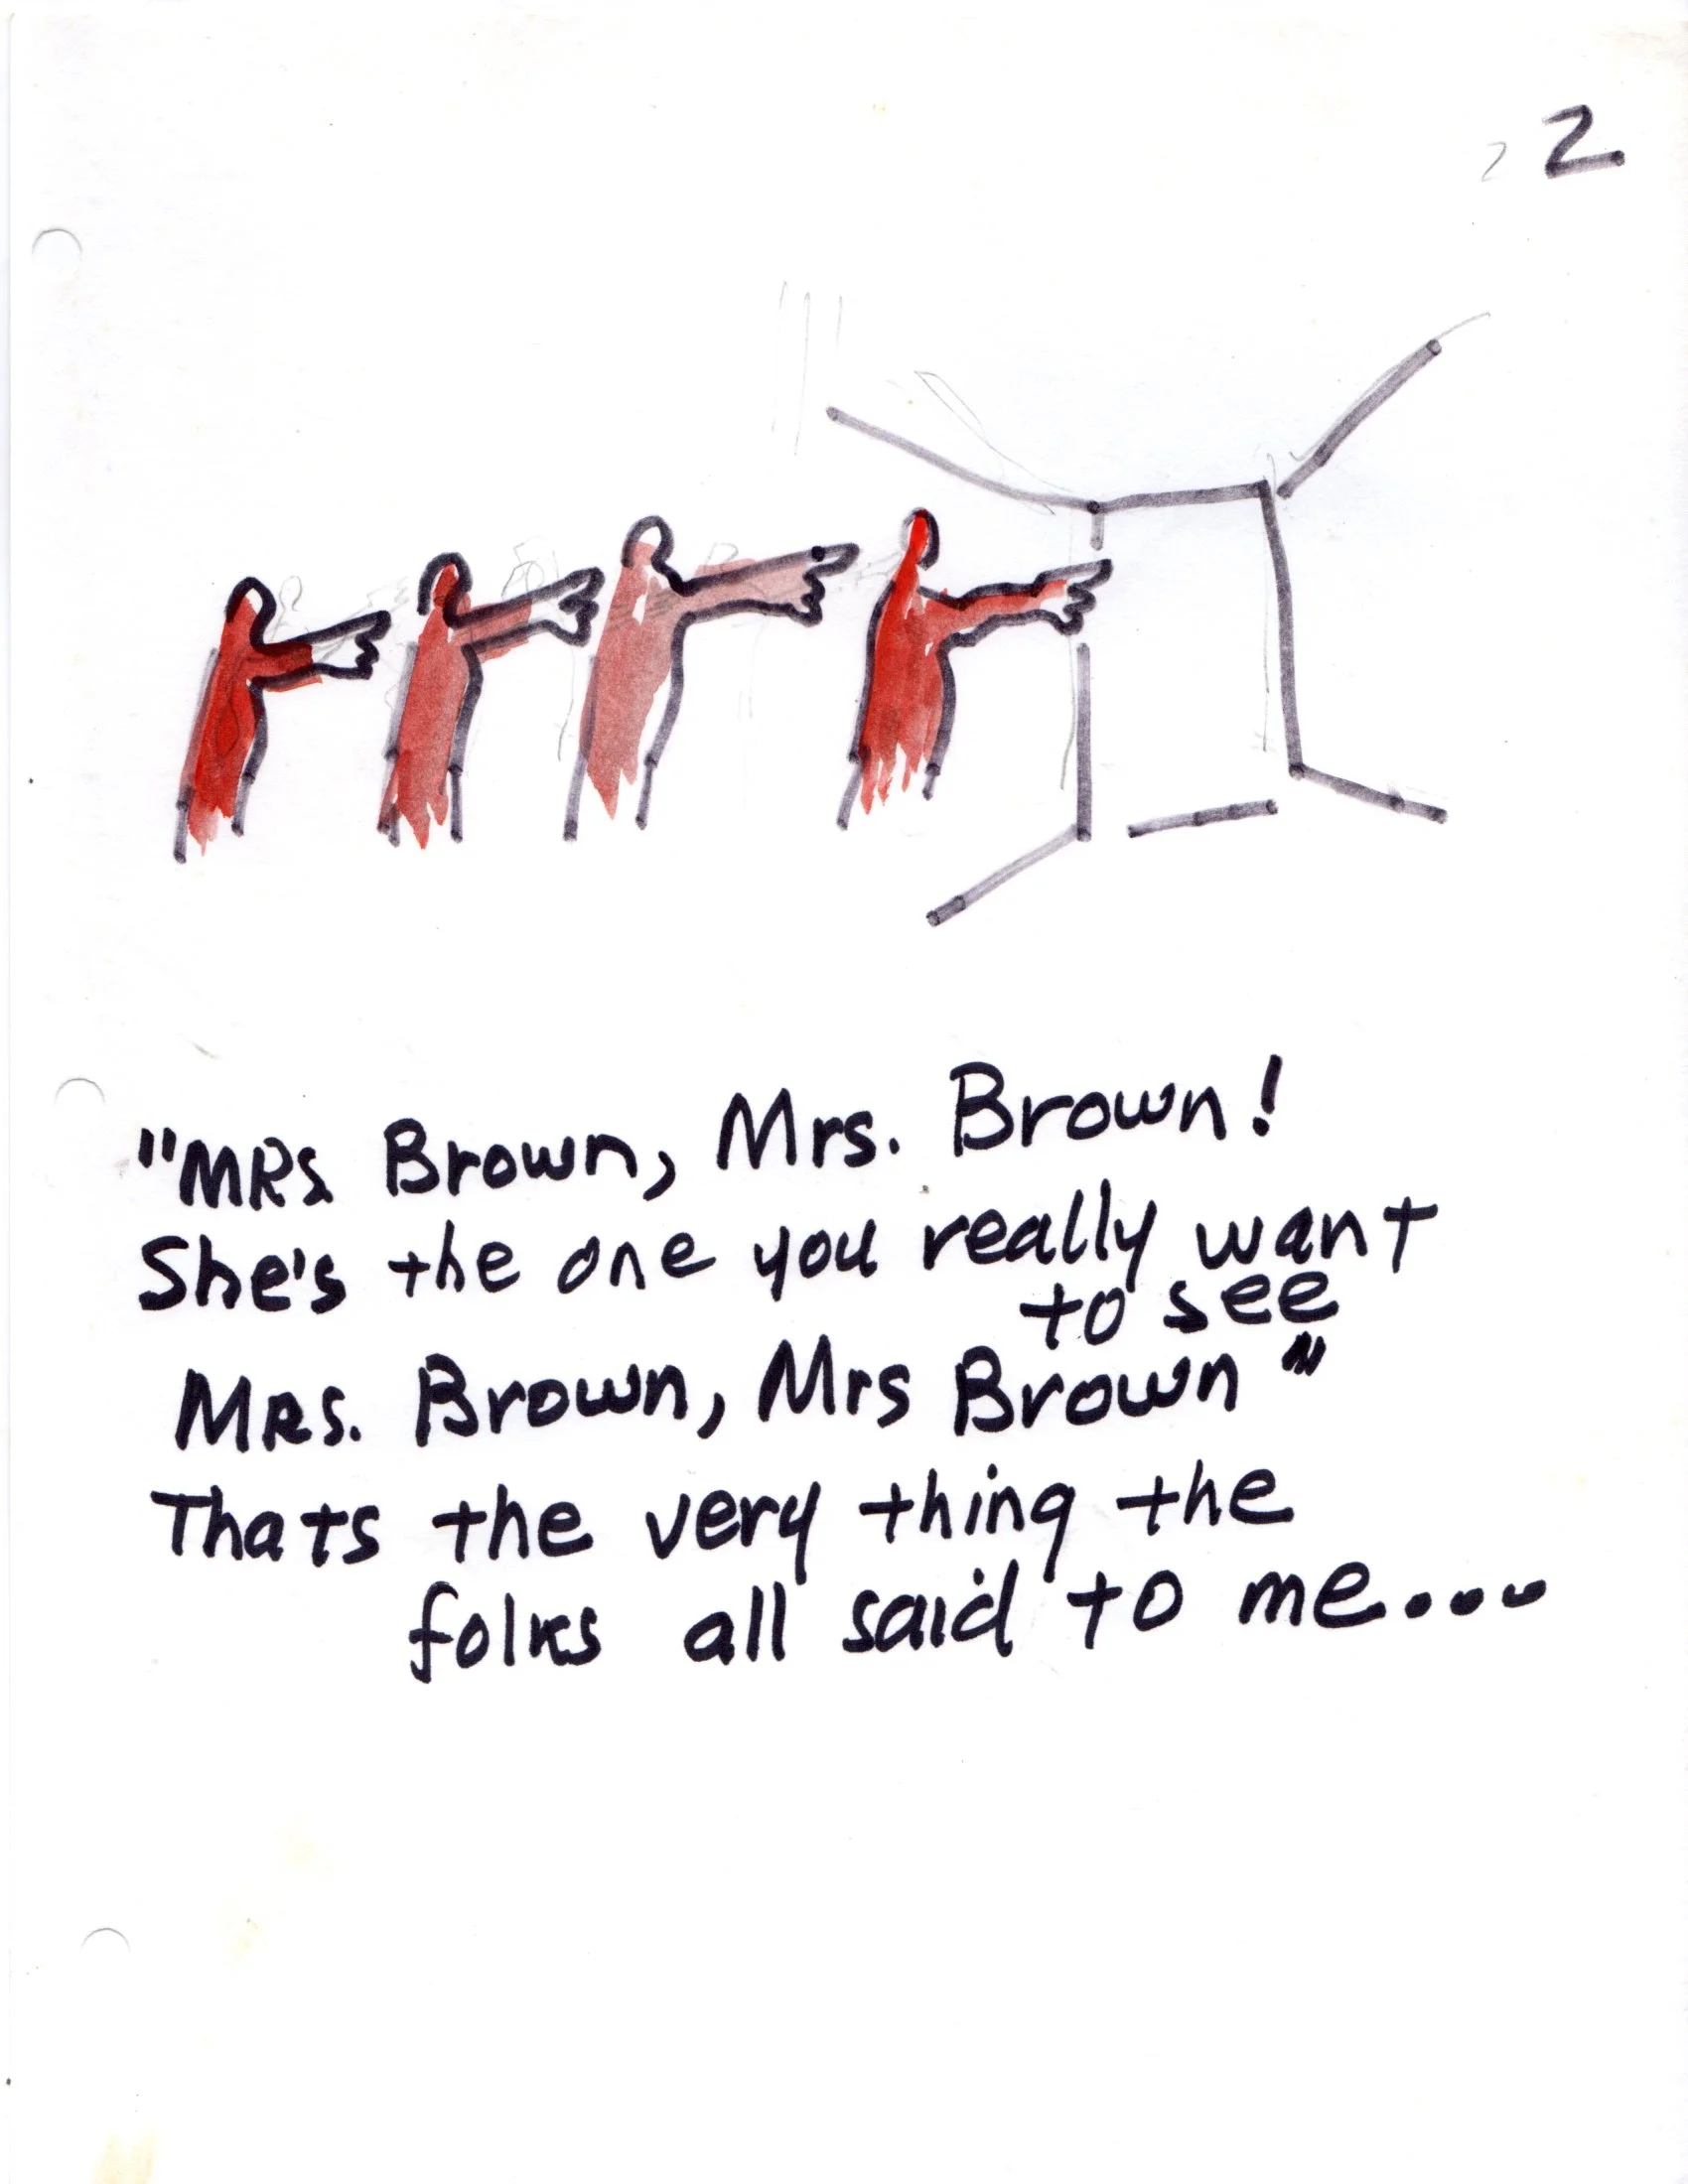 2
2
"MRs Brown, Mrs. Brown!
She's the one you really want
to see
MRs. Brown, Mrs Brown"
Thats the very thing the
folks all said to me....